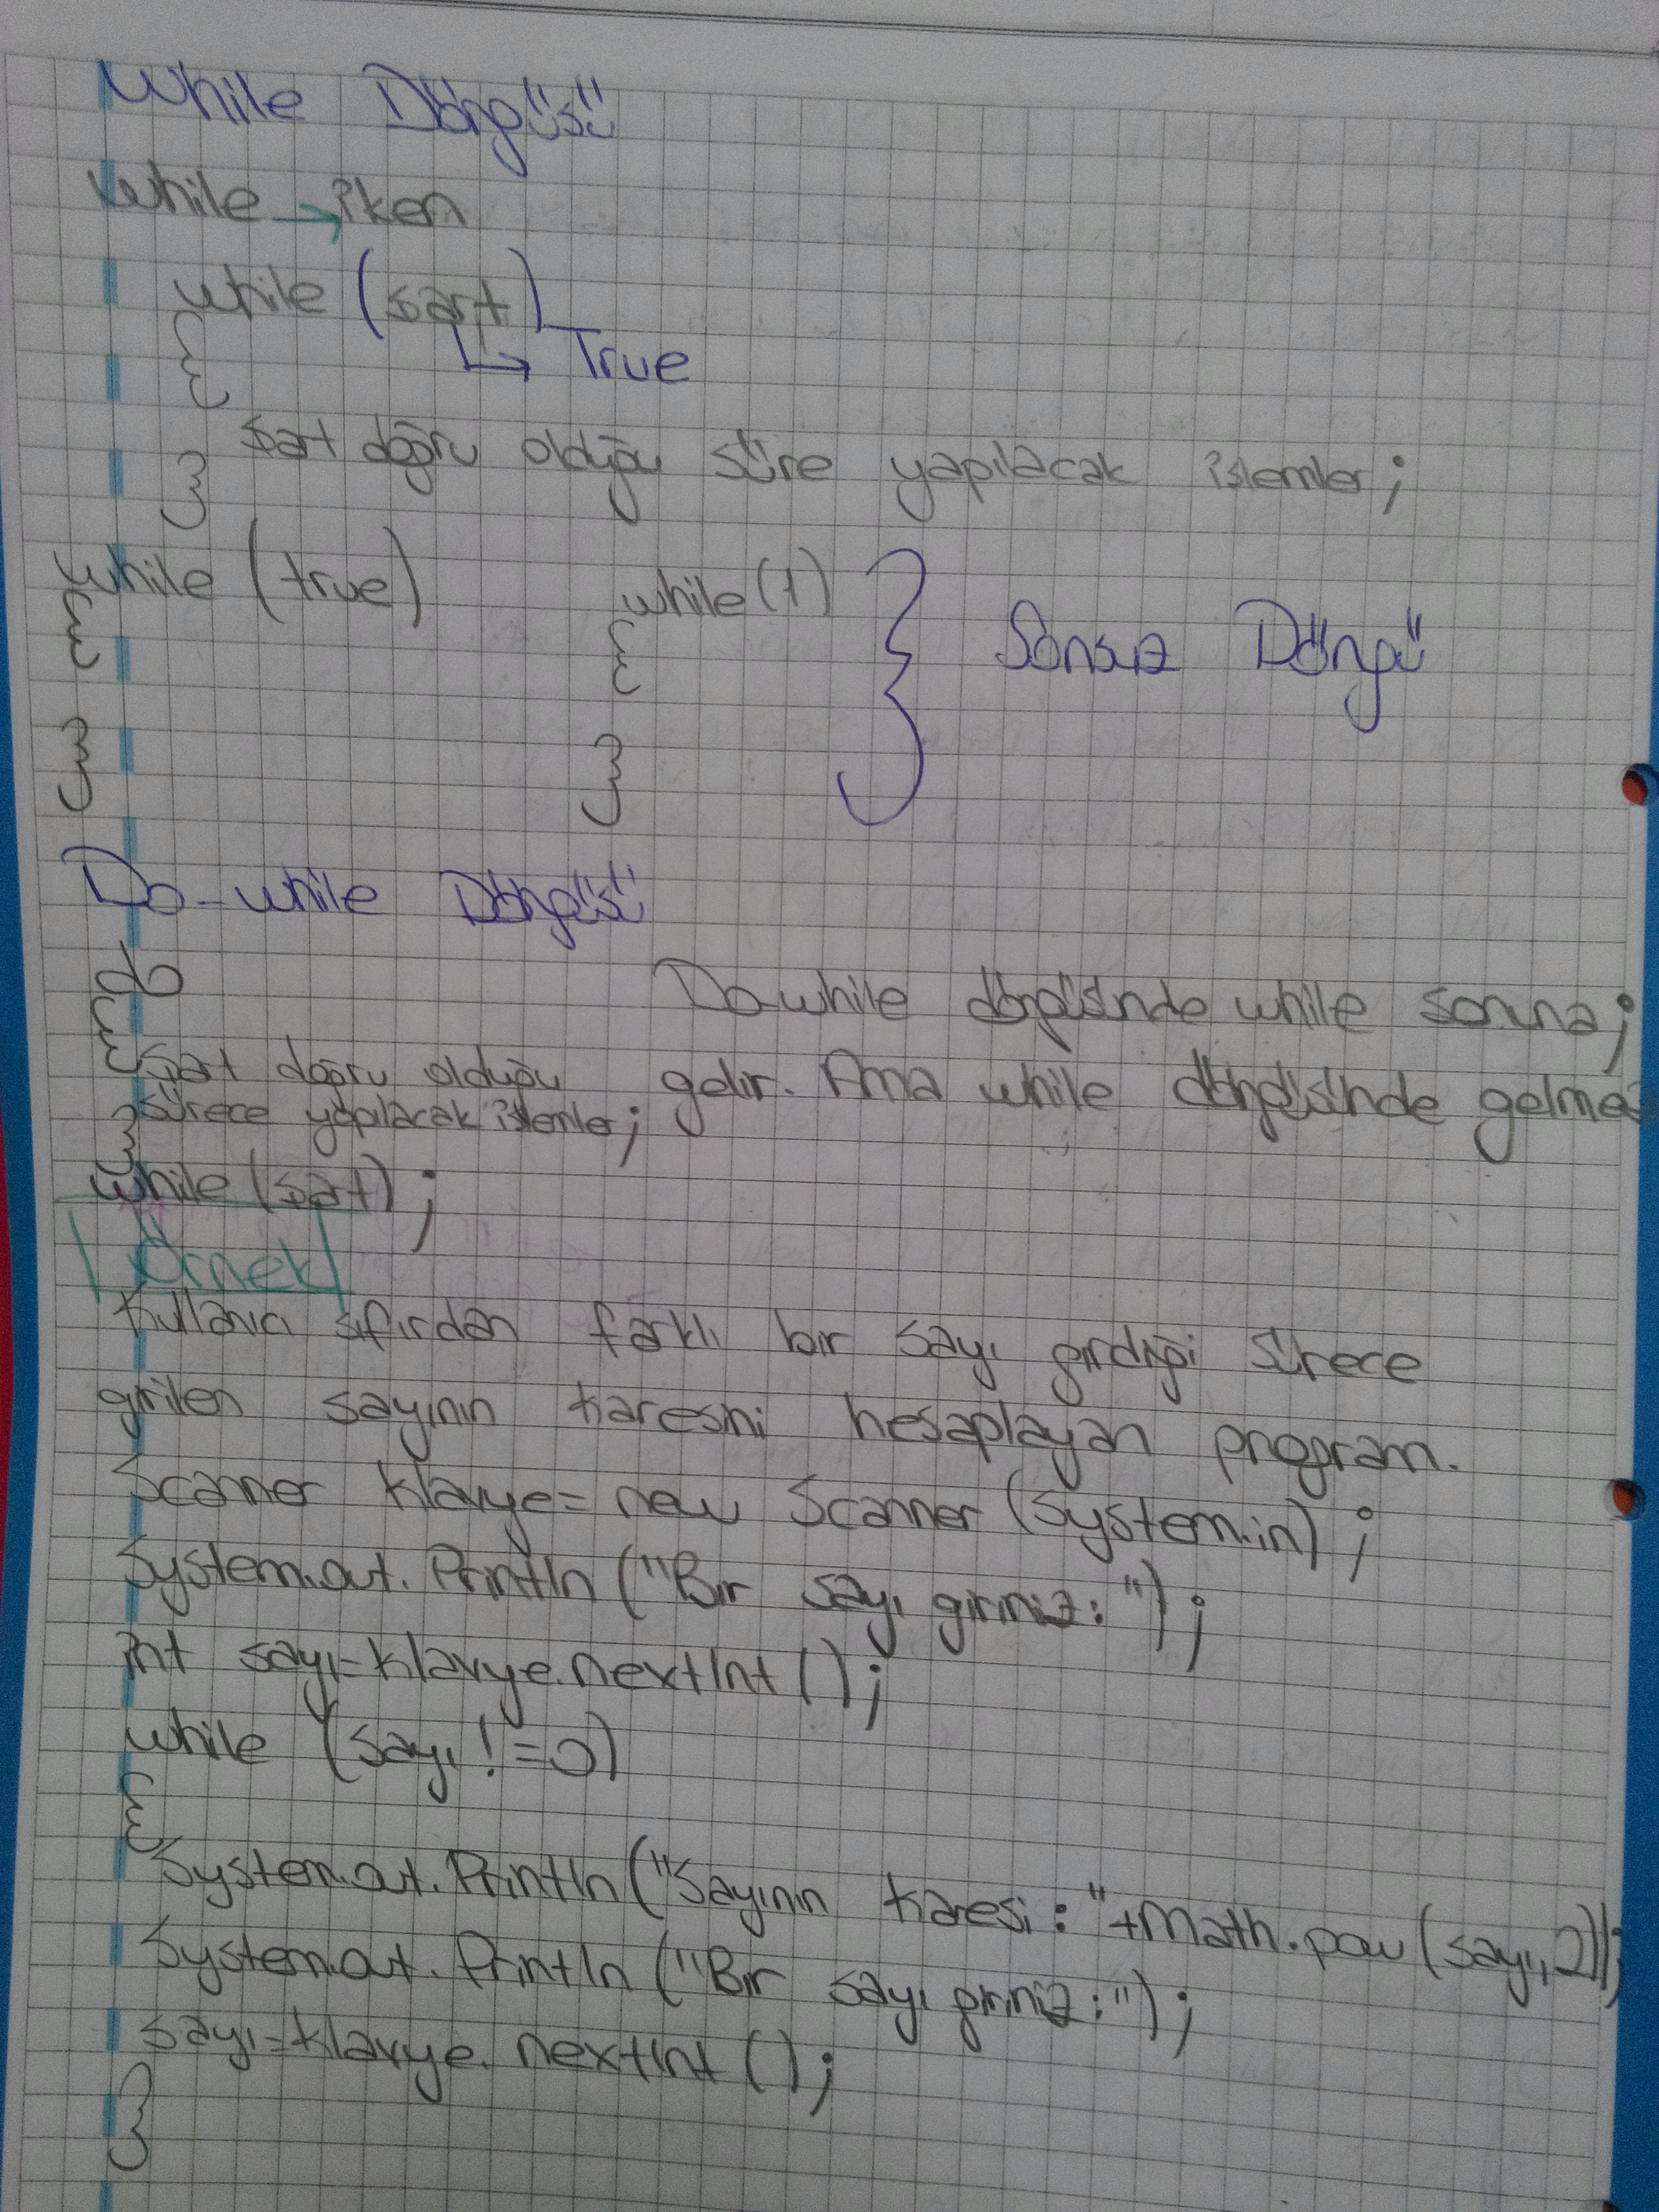 While Döngüsü
While → iken
while (şart)
↳ True
{
şart doğru olduğu süre yapılacak işlemler;
}
while (true)
{
}
while(1)
{
}
} Sonsuz Döngü
Do-while Döngüsü
do
{
şart doğru olduğu
sürece yapılacak işlemler;
}
while (şart);
Do-while döngüsünde while sonuna ;
gelir. Ama while döngüsünde gelmez
Örnek
Kullanıcı sıfırdan farklı bir sayı girdiği sürece
girilen sayının karesini hesaplayan program.
Scanner klavye = new Scanner (System.in);
System.out.Println ("Bir sayı giriniz: ");
int sayı=klavye.nextInt ();
while (sayı != 0)
{
System.out.Println ("Sayının karesi: "+Math.pow (sayı,2));
System.out.Println ("Bir sayı giriniz: ");
sayı=klavye.nextInt ();
}